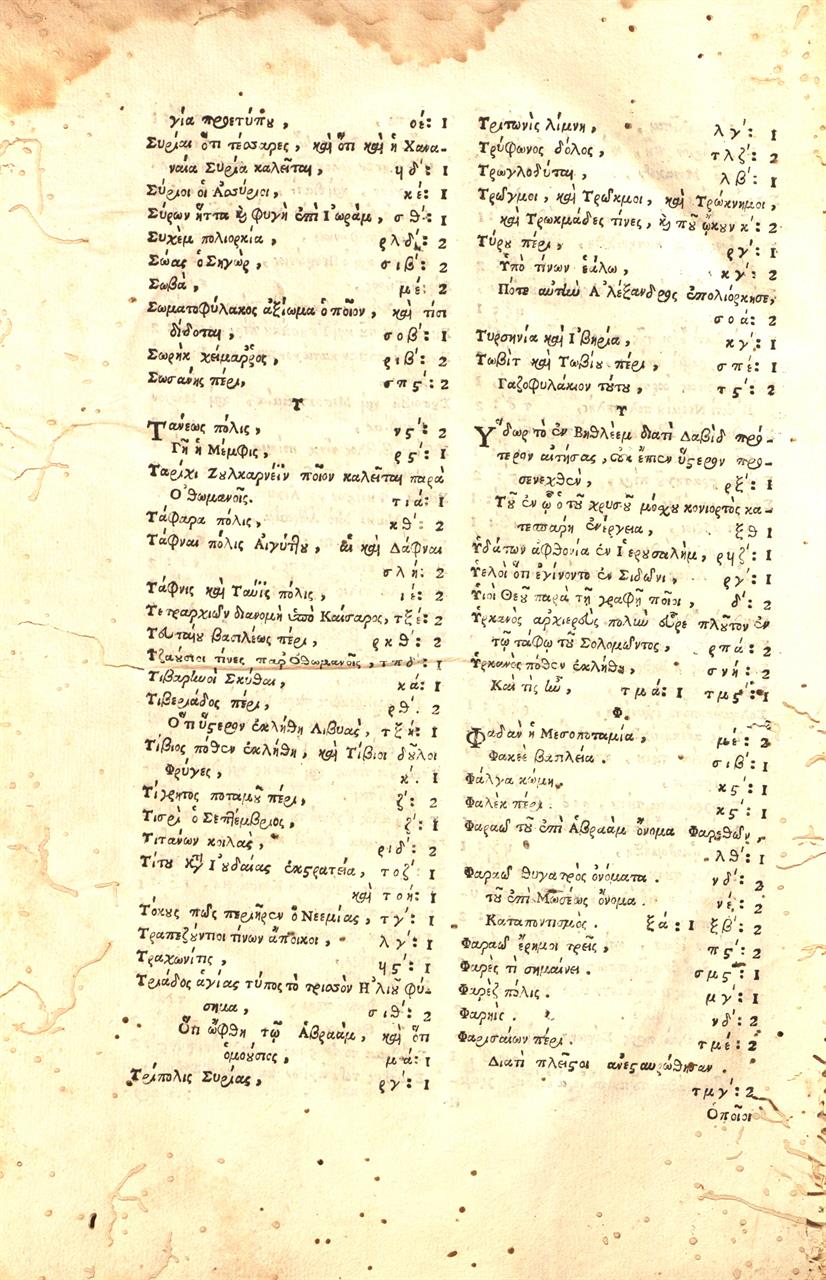 γία πρωτύπου, οέ: 1
Συρίαι ὅτι τέσσαρες, καὶ ὅτι καὶ ἡ Χανα-
ναία Συρία καλεῖται, ϟδ΄: 1
Σύριοι οἱ Ἀσύριοι, κέ: 1
Σύρων ἧττα καὶ φυγὴ ἐπὶ Ἰωράμ, σθ΄: 1
Συχὲμ πολιορκία, ρλδ΄: 2
Σώας ὁ Σηγὼρ, σιβ΄: 2
Σωβὰ, μέ: 2
Σωματοφύλακος ἀξίωμα ὁποῖον, καὶ τίσι
δίδοται, σοβ΄: 1
Σωρὴκ χείμαρρος, ριβ΄: 2
Σωσάνης πέρι, σπς΄: 2
Τ
Τανέως πόλις, νς΄: 2
Γῆ ἡ Μέμφις, ρς΄: 1
Ταρίχι Ζουλκαρνέϊν ποῖον καλεῖται παρὰ
Ὀθωμανοῖς. τιά: 1
Τάφαρα πόλις, κθ΄: 2
Τάφναι πόλις Αἰγύπτου, αἱ καὶ Δάφναι
σλή: 2
Τάφνις καὶ Ταΰϊς πόλις, ιέ: 2
Τετραρχιῶν διανομὴ ὑπὸ Καίσαρος, τξέ: 2
Τουταίου βασιλέως πέρι, ρκθ΄: 2
Τζαούσιοι τίνες παρ' Ὀθωμανοῖς, τπδ΄: 1
Τιβαρηνοὶ Σκύθαι, κά: 1
Τιβεριάδος πέρι, ρθ΄. 2
Ὅτι ὕςερον ἐκλήθη Λιβυὰς, τξή: 1
Τίβιος πόθεν ἐκλήθη, καὶ Τίβιοι δοῦλοι
Φρύγες, κ΄. 1
Τίγρητος ποταμοῦ πέρι, ζ΄: 2
Τισρὶ ὁ Σεπτέμβριος, ζ΄: 1
Τιτάνων κοιλὰς, ριδ΄: 2
Τίτου κατὰ Ἰουδαίας ἐκςρατεία, τοζ΄: 1
καὶ τοή: 1
Τόκους πῶς περιῆρεν ὁ Νεεμίας, τγ΄: 1
Τραπεζούντιοι τίνων ἄποικοι, λγ΄: 1
Τραχωνίτις, ϟς΄: 1
Τριάδος ἁγίας τύπος τὸ τρισσὸν Ἠλιοῦ φύ-
σημα, σιθ΄: 2
Ὅτι ὤφθη τῷ Ἀβραὰμ, καὶ ὅτι
ὁμούσιος, μά: 1
Τρίπολις Συρίας, ργ΄: 1
Τριτωνὶς λίμνη, λγ΄: 1
Τρύφωνος δόλος, τλζ΄: 2
Τρωγλοδύται, λβ΄: 1
Τρῶγμοι, καὶ Τρῶκμοι, καὶ Τρώκνημοι,
καὶ Τρωκμάδες τίνες, καὶ ποῦ ᾤκουν κ΄: 2
Τύρου πέρι, ργ΄: 1
Ὑπὸ τίνων ἑάλω, κγ΄: 2
Πότε αὐτὴν Ἀλέξανδρος ἐπολιόρκησε,
σοά: 2
Τυρσηνία καὶ Ἰβηρία, κγ΄: 1
Τωβὶτ καὶ Τωβίου πέρι, σπέ: 1
Γαζοφυλάκιον τούτου, τς΄: 2
Υ
Ὕδωρ τὸ ἐν Βηθλέεμ διατὶ Δαβὶδ πρό-
τερον αἰτήσας, οὐκ ἔπιεν ὕςερον προ-
σενεχθὲν, ρξ΄: 1
Τοῦ ἐν ᾧ ὁ τοῦ χρυσοῦ μόχου κονιορτὸς κα-
τεσπάρη ἐνέργεια, ξθ 1
Ὑδάτων ἀφθονία ἐν Ἱερουσαλὴμ, ρϟζ΄: 1
Ὑελοὶ ὅτι ἐγίνοντο ἐν Σιδῶνι, ργ΄: 1
Υἱοὶ Θεοῦ παρὰ τῇ γραφῇ ποῖοι, δ΄: 2
Ὑρκανὸς ἀρχιερεὺς πολὺν εὗρε πλοῦτον ἐν
τῷ τάφῳ τοῦ Σολομῶντος, ρπά: 2
Ὑρκανὸς πόθεν ἐκλήθη, σνή: 2
Καὶ τὶς ἦν, τμά: 1 τμς΄: 1
Φ.
Φαδὰν ἡ Μεσοποταμία, μέ: 2
Φακεὲ βασιλεία. σιβ΄: 1
Φάλγα κώμη. κς΄: 1
Φαλὲκ πέρι. κς΄: 1
Φαραὼ τοῦ ἐπὶ Ἀβραὰμ ὄνομα Φαρεθών,
λθ΄: 1
Φαραὼ θυγατρὸς ὀνόματα. νδ΄: 2
τοῦ ἐπὶ Μωσέως ὄνομα. νέ: 2
Καταποντισμός. ξά: 1 ξβ΄: 2
Φαραὼ ἔρημοι τρεῖς, πς΄: 2
Φαρὲς τὶ σημαίνει. σμς΄: 1
Φαρὲζ πόλις. μγ΄: 1
Φαρηὶς. νδ΄: 2
Φαρισαίων πέρι. τμέ: 2
Διατὶ πλεῖςοι ἀνεςαυρώθησαν.
τμγ΄: 2
Ὁποῖοι